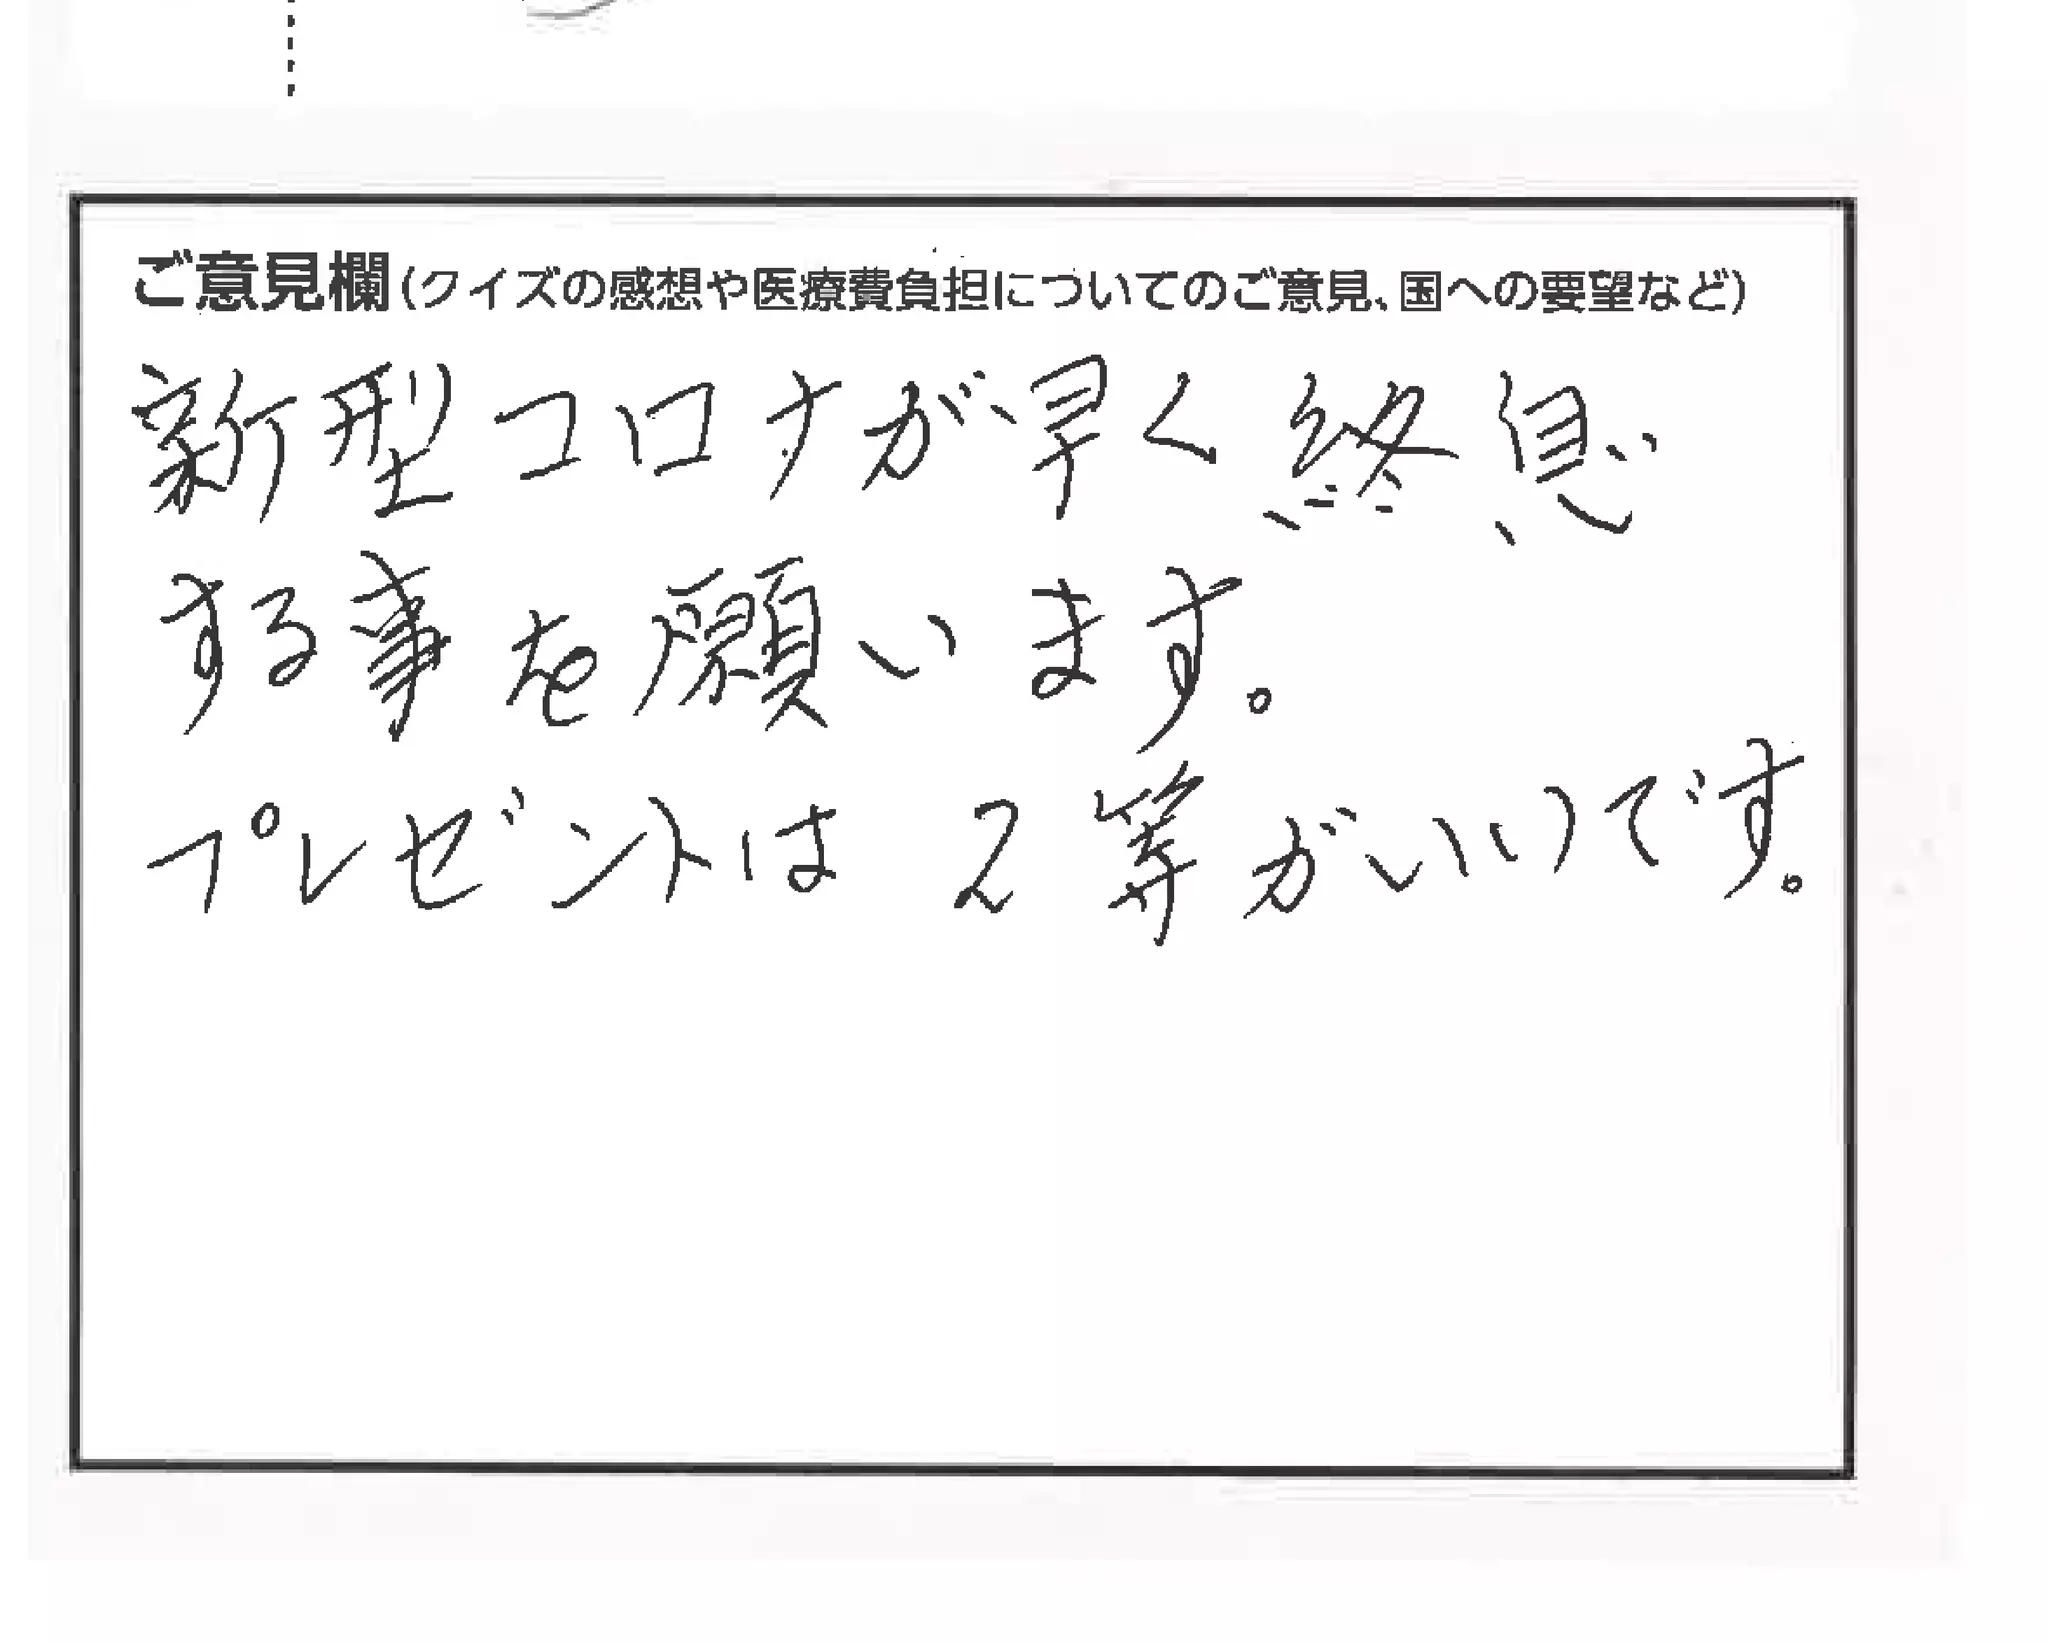 ご意見欄(クイズの感想や医療費負担についてのご意見、国への要望など)
新型コロナが早く終息
する事を願います。
プレゼントは2等がいいです。